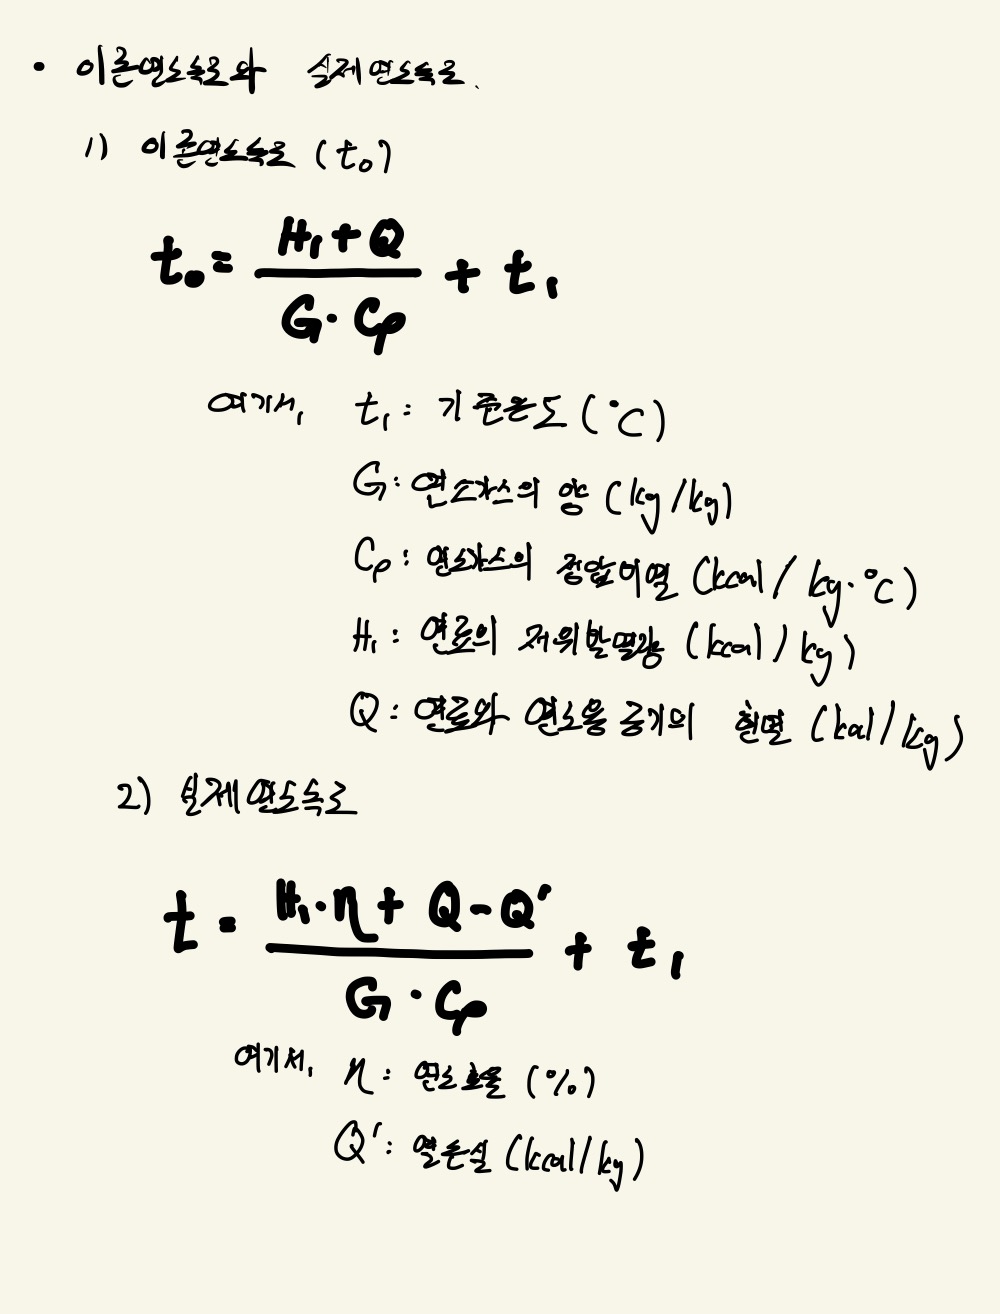 • 이론연소속도와 실제연소속도.
1) 이론연소속도 (t₀)
t₀ = (H₁ + Q) / (G · Cp) + t₁
여기서, t₁ : 기준온도 (°C)
G : 연소가스의 양 (kg/kg)
Cp : 연소가스의 정압비열 (kcal/kg·°C)
H₁ : 연료의 저위발열량 (kcal/kg)
Q : 연료와 연소용 공기의 현열 (kcal/kg)
2) 실제연소속도
t = (H₁·η + Q - Q′) / (G · Cp) + t₁
여기서, η : 연소효율 (%)
Q′ : 열손실 (kcal/kg)